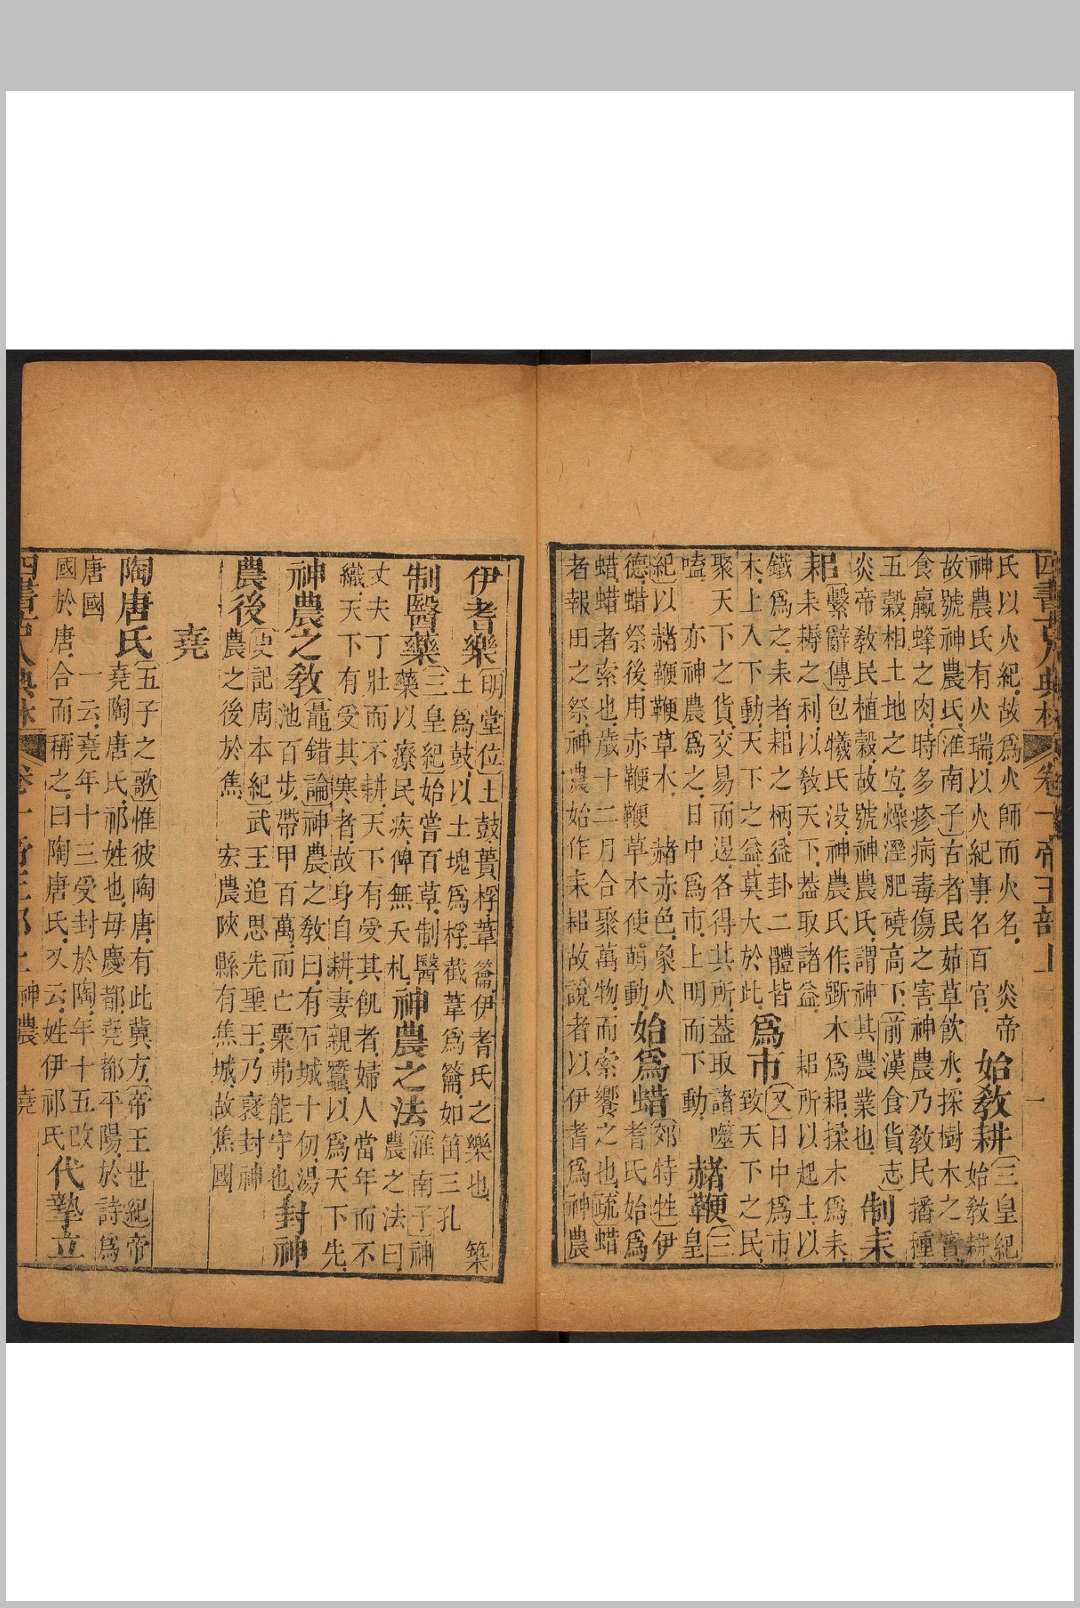 四書古人典林 卷一 帝王部上 一
氏以火紀故爲火師而火名 炎帝
神農氏有火瑞以火紀事名百官 始敎耕 三皇紀
故號神農氏 淮南子 古者民茹草飮水採樹木之實 始敎耕
食蠃蜂之肉時多疹病毒傷之害神農乃敎民播種
五穀相土地之宜燥溼肥磽高下 前漢食貨志
炎帝敎民植穀故號神農氏謂神其農業也 制耒
耜 繫辭傳 包犧氏沒神農氏作斲木爲耜揉木爲耒
耒耨之利以敎天下葢取諸益 耜所以起土以
鐵爲之耒者耜之柄益卦二體皆
木上入下動天下之益莫大於此 爲市 又日中爲市
致天下之民
聚天下之貨交易而退各得其所葢取諸噬
嗑 亦神農爲之日中爲市上明而下動 赭鞭 三皇
紀 以赭鞭鞭草木 赭赤色象火
德蜡祭後用赤鞭鞭草木使萌動 始爲蜡 郊特牲 伊
耆氏始爲
蜡蜡者索也歲十二月合聚萬物而索饗之也 疏 蜡
者報田之祭神農始作耒耜故說者以伊耆爲神農
伊耆樂 明堂位 土鼓蕢桴葦籥伊耆氏之樂也 築
土爲鼓以土塊爲桴截葦爲籥如笛三孔
制醫藥 三皇紀 始嘗百草制醫
藥以療民疾俾無夭札 神農之法 淮南子 神
農之法曰
丈夫丁壯而不耕天下有受其飢者婦人當年而不
織天下有受其寒者故身自耕妻親蠶以爲天下先
神農之敎 鼂錯論 神農之敎曰有石城十仞湯
池百步帶甲百萬而亡粟弗能守也 封神
農後 史記周本紀 武王追思先聖王乃襃封神
農之後於焦 宏農陝縣有焦城故焦國
堯
陶唐氏 五子之歌 惟彼陶唐有此冀方 帝王世紀 帝
堯陶唐氏祁姓也母慶都堯都平陽於詩爲
唐國 一云堯年十三受封於陶年十五改
國於唐合而稱之曰陶唐氏又云姓伊祁氏 代摯立
四書古人典林 卷一 帝王部上 神農 堯